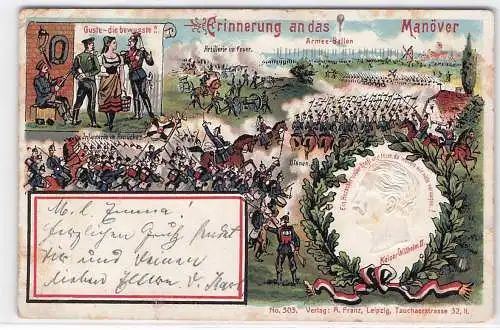 Erinnerung an das Manöver
"Guste – die bewusste"!!
Armee-Ballon
Artillerie im Feuer.
Infanterie im
Ulanen
Kaiser Wilhelm II.
M. l. Emma!
Herzlichen Gruß sendet
Dir und Deinen
lieben Eltern d. Karl
No. 503. Verlag: A. Franz, Leipzig, Tauchaerstrasse 32, II.